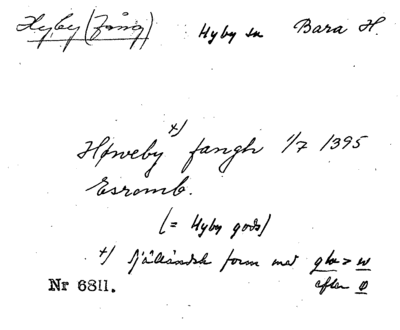 Hyby (Fång) Hyby sn Bara H.
+)
Høweby fangh 1/7 1395
Esromb.
(= Hyby gods)
+) Själländsk form med ghw > w
Nr 6811. efter ø